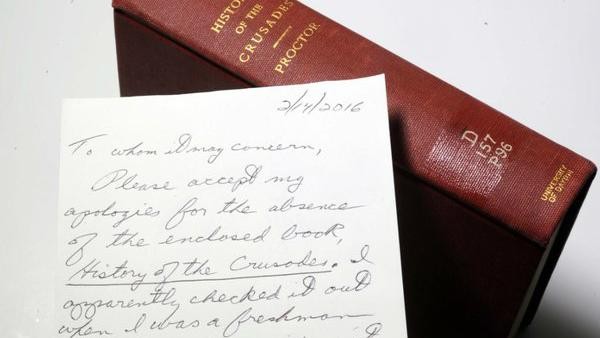 HISTORY
OF THE
CRUSADES
PROCTOR
D
157
P96
UNIVERSITY
OF DAYTON
2/14/2016
To whom it may concern,
Please accept my
apologies for the absence
of the enclosed book,
History of the Crusades. I
apparently checked it out
when I was a freshman
I